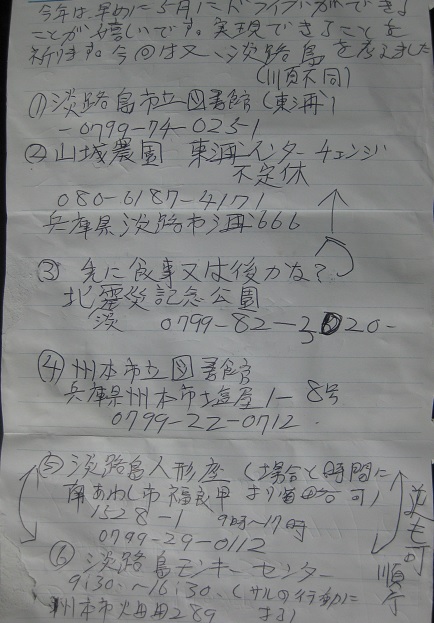 今年は、早めに5月にドライブができる
ことが嬉しいです。実現できることを
祈ります。今回は又、淡路島を考えました
(順不同)
① 淡路島市立図書館(東浦)
-0799-74-0251
② 山城農園 東浦インターチェンジ
不定休
080-6187-4171
兵庫県淡路市浦666
③ 先に食事又は後かな?
北震災記念公園
淡 0799-82-3020-
④ 州本市立図書館
兵庫県州本市塩屋1-8号
0799-22-0712
⑤ 淡路島人形座 (場合と時間に
南あわじ市福良甲 より省略可)
1528-1 9時〜17時
0799-29-0112
逆も可
順序
⑥ 淡路島モンキーセンター
9:30.〜16:30. (サルの行動に
州本市火田田289 よる)